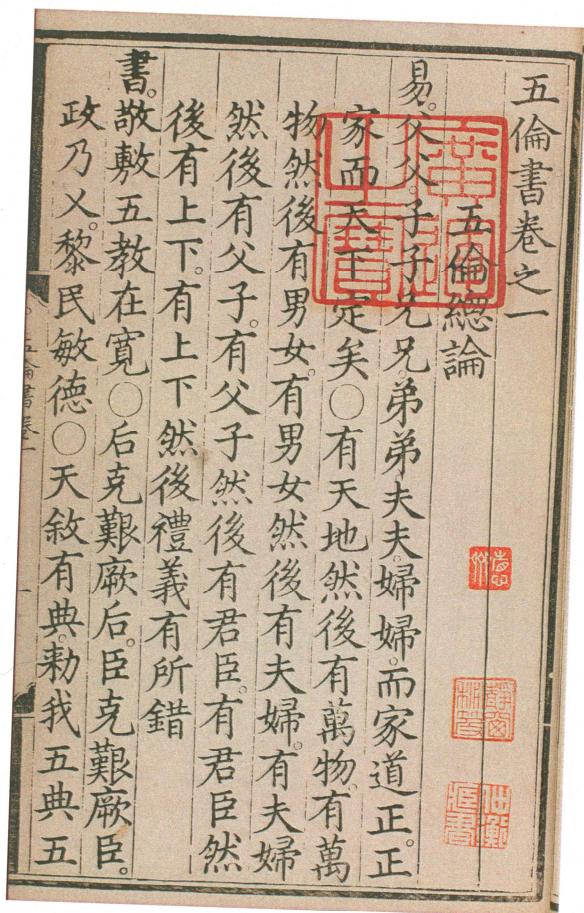 五倫書卷之一
五倫總論
易。父父。子子。兄兄。弟弟。夫夫。婦婦。而家道正。正
家而天下定矣○有天地然後有萬物。有萬
物然後有男女。有男女然後有夫婦。有夫婦
然後有父子。有父子然後有君臣。有君臣然
後有上下。有上下然後禮義有所錯
書。敬敷五教在寬○后克艱厥后。臣克艱厥臣。
政乃乂。黎民敏德○天敘有典。勑我五典五
五倫書卷一